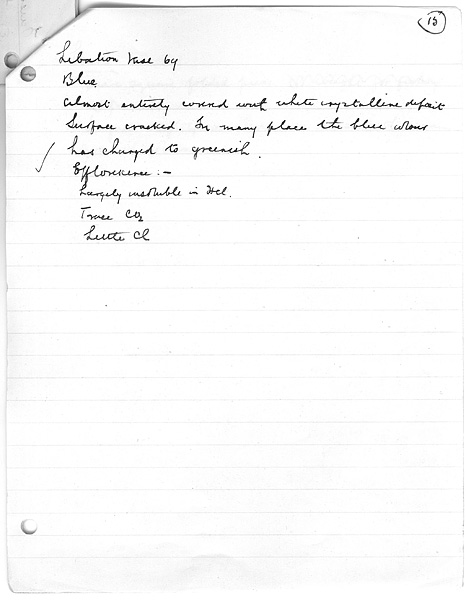 15
Libation Vase 69
Blue
almost entirely covered with white crystalline deposit
Surface cracked. In many place the blue colour
has changed to greenish.
Efflorescence :-
Largely insoluble in Hcl.
Trace CO2
Little Cl